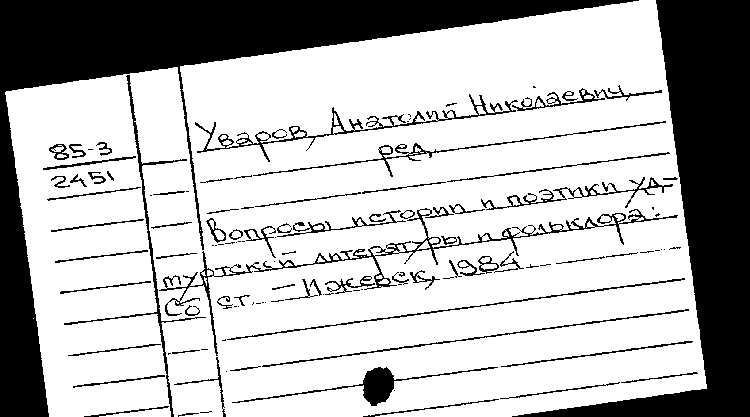 85-3
2451
Уваров, Анатолий Николаевич,
ред.
Вопросы истории и поэтики уд-
муртской литературы и фольклора:
Сб ст. – Ижевск, 1984